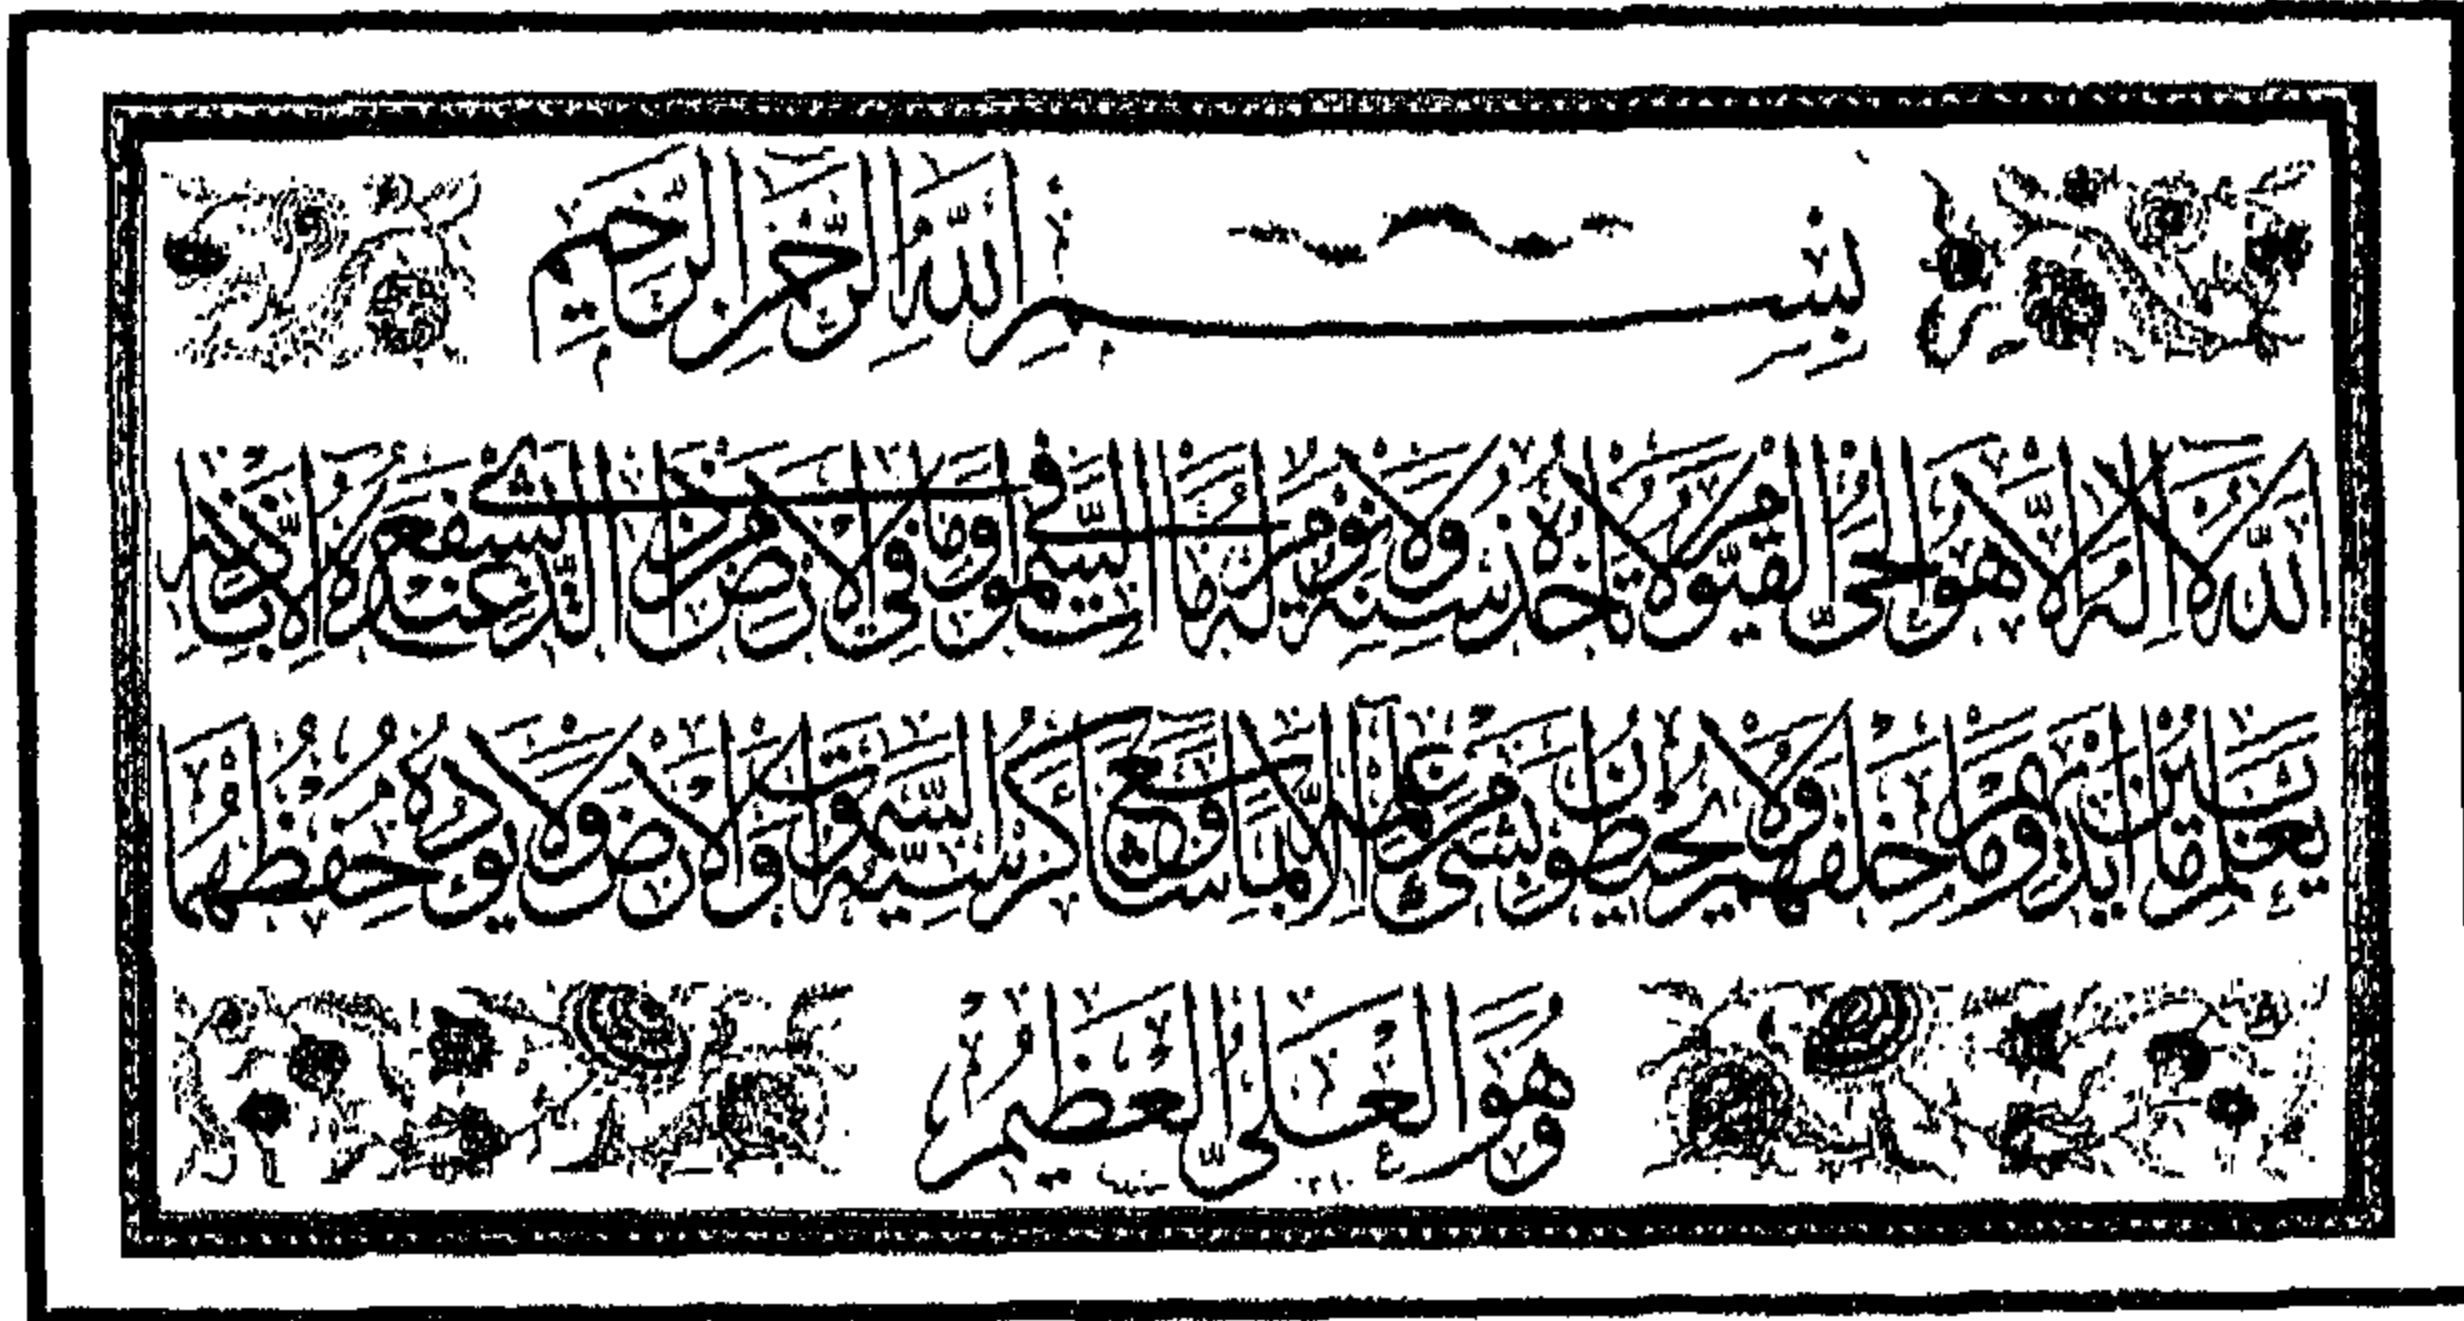 بِسْمِ اللَّهِ الرَّحْمَٰنِ الرَّحِيمِ
اللَّهُ لَا إِلَٰهَ إِلَّا هُوَ الْحَيُّ الْقَيُّومُ لَا تَأْخُذُهُ سِنَةٌ وَلَا نَوْمٌ لَهُ مَا فِي السَّمَٰوَاتِ وَمَا فِي الْأَرْضِ مَنْ ذَا الَّذِي يَشْفَعُ عِنْدَهُ إِلَّا بِإِذْنِهِ
يَعْلَمُ مَا بَيْنَ أَيْدِيهِمْ وَمَا خَلْفَهُمْ وَلَا يُحِيطُونَ بِشَيْءٍ مِنْ عِلْمِهِ إِلَّا بِمَا شَاءَ وَسِعَ كُرْسِيُّهُ السَّمَٰوَاتِ وَالْأَرْضَ وَلَا يَئُودُهُ حِفْظُهُمَا
وَهُوَ الْعَلِيُّ الْعَظِيمُ